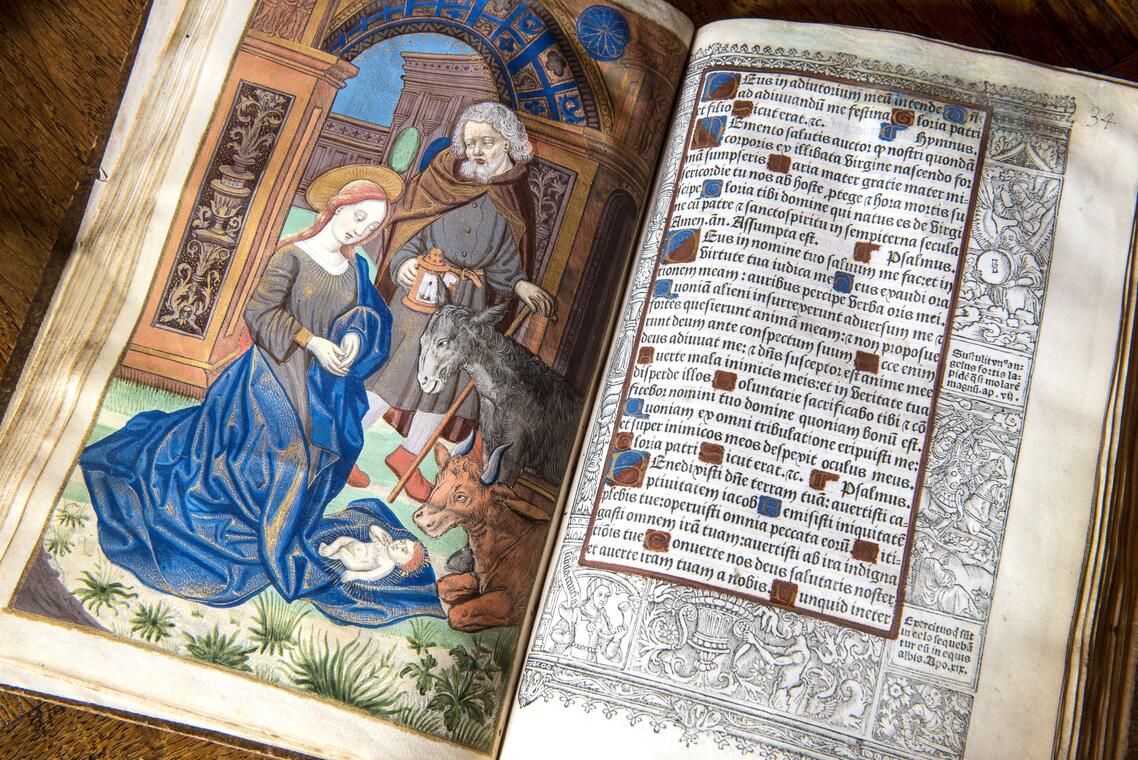 Eus in adiutoriũ meũ intende. Dñe
ad adiuvandũ me festina. Gloria patri
et filio Sicut erat. ⁊c. Hymnus.
Emento salutis auctor ꝙ nostri quondã
corporis ex illibata virgine nascendo for
mã sumpseris. Maria mater gratie mater mi-
sericordie tu nos ab hoste ꝓtege ⁊ hora mortis su
scipe Gloria tibi domine qui natus es de virgi
ne cũ patre ⁊ sancto spiritu in sempiterna secula
Amen. añ. Assumpta est. Psalmus.
Eus in nomine tuo saluum me fac: et in
virtute tua iudica me Deus exaudi ora
tionem meam: auribus percipe verba oris mei.
Quoniã alieni insurrexerunt aduersum me ⁊
fortes quesierunt animã meam: ⁊ non proposue
runt deum ante conspectum suum Ecce enim
deus adiuuat me: ⁊ dñs susceptor est anime mee
Auerte mala inimicis meis: et in veritate tua
disperde illos. Voluntarie sacrificabo tibi ⁊ cõ
fitebor nomini tuo domine quoniam bonũ est.
Quoniam ex omni tribulatione eripuisti me:
et super inimicos meos despexit oculus meus.
Gloria patri Sicut erat. ⁊c. Psalmus.
Enedixisti dñe terram tuã: auertisti ca-
ptiuitatem iacob Remisisti iniquitatẽ
plebis tue: operuisti omnia peccata eorũ Miti.
gasti omnem irã tuam: auertisti ab ira indigna
tiõis tue Conuerte nos deus salutaris noster
et auerte iram tuam a nobis. Nunquid ineter
34
Sustulit vnꝰ an-
gelus fortis la-
pidẽ q̃si molarẽ
magnũ. ap. xviij.
Exercitus q̃ sũt
in celo sequebã
tur eũ in equis
albis. Apo. xix.